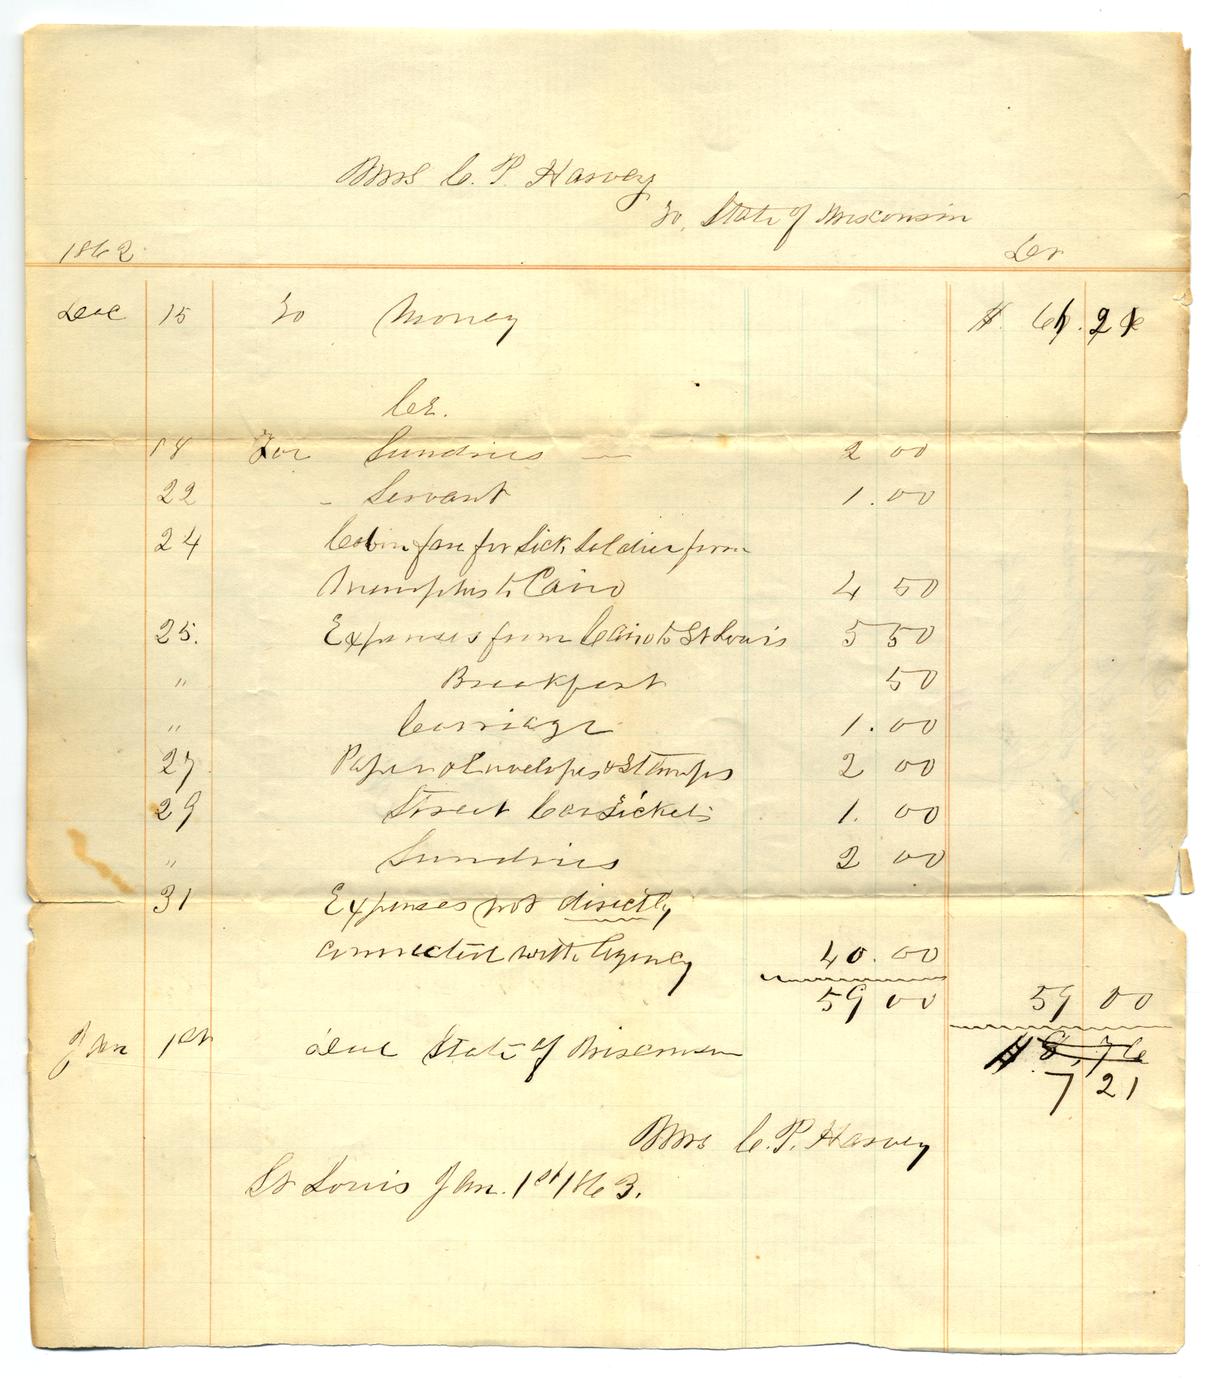 Mrs C. P. Harvey
To, State of Wisconsin
1862 Dr
Dec 15 To Money $ 66.21
Cr.
18 For Sundries — 2 00
22 - Servant 1.00
24 Cabin fare for Sick Soldier from
Memphis to Cairo 4 50
25. Expenses from Cairo to St Louis 5 50
" Breakfast 50
" Carriage 1.00
27 Paper & Envelopes & Stamps 2 00
29 Street Car Tickets 1. 00
" Sundries 2 00
31 Expenses not directly
connected with Agency 40.00
59 00 59 00
Jan 1st due State of Wisconsin $ 8,76
7 21
Mrs C. P. Harvey
St Louis Jan. 1st 1863.